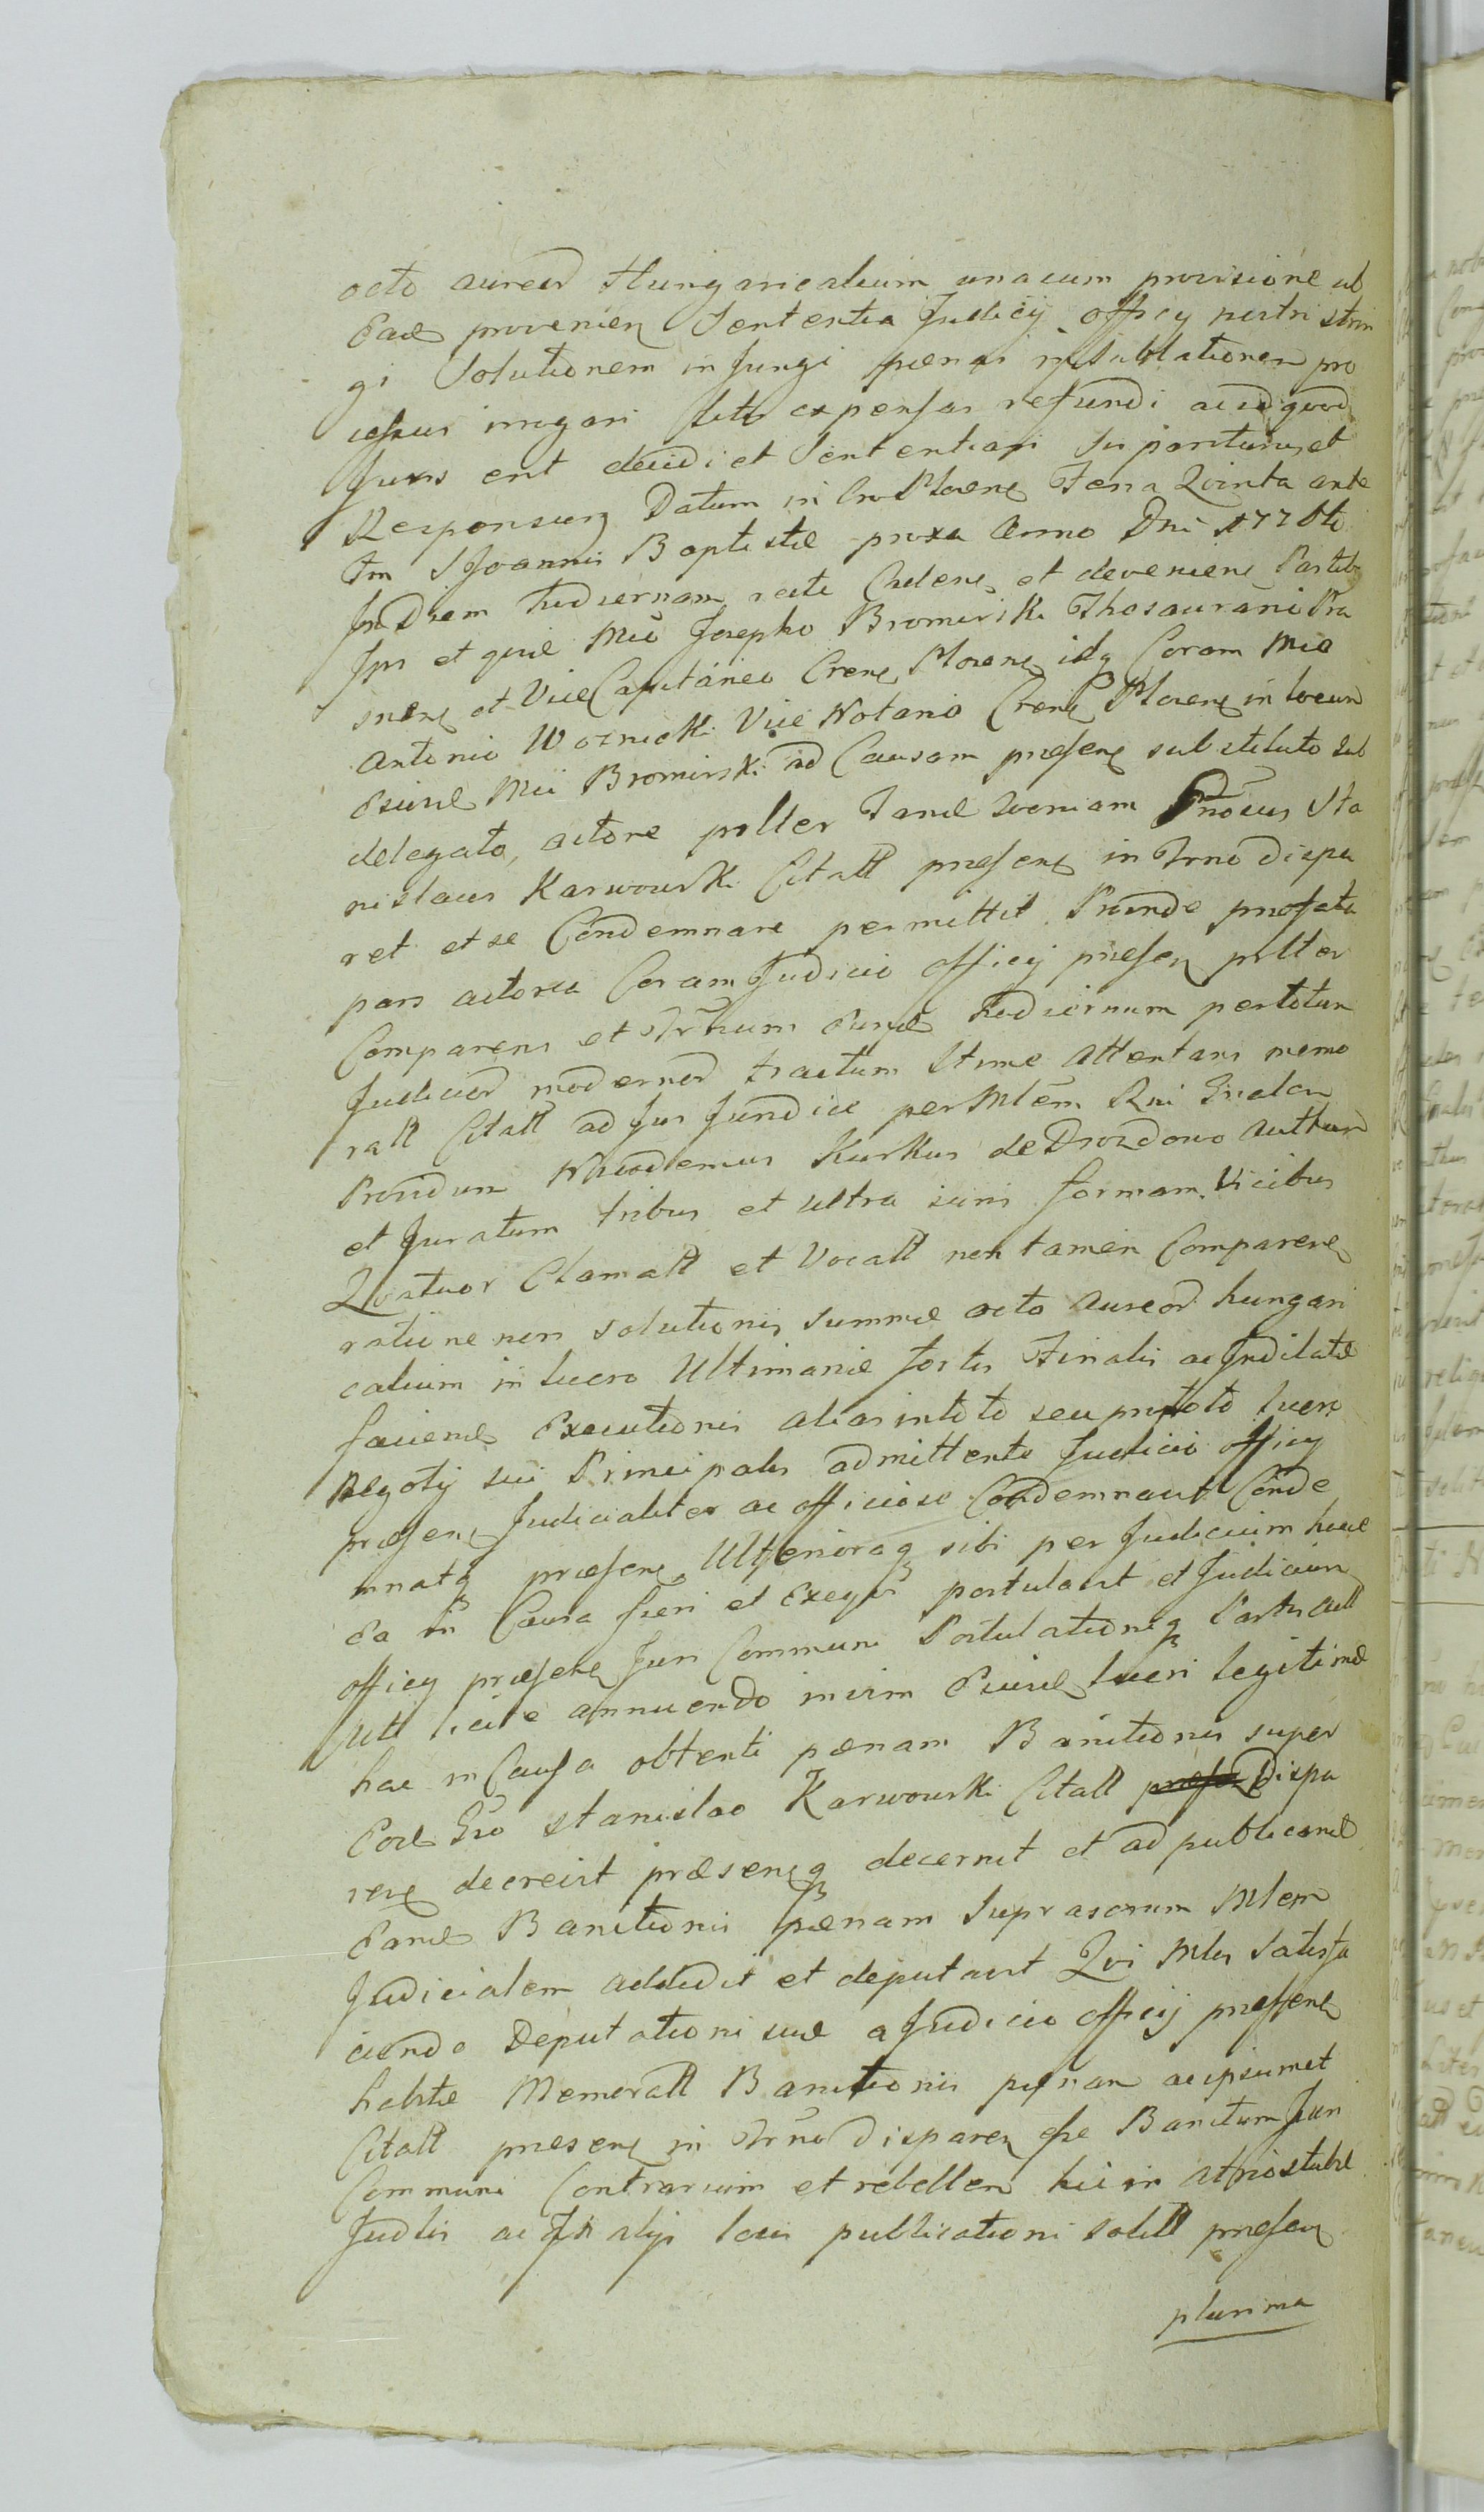 octo aureor Hungaricalium unacum provisione ab
Eade provenien Sententia Judicij officy nostri strin
gi Solutionem injungi pænas sublationem pro
cessus irrogari litis expensas refundi ac id quod
Juris erit decidi et Sententiari Sis pariturus et
Responsurus Datum in Cro Feria Qvinta ante
Fm S Joannis Baptistæ proxa Anno Dni 177
In Diem hodiernam recte Caden et devenien Partib
Ips et quæ Mco Josepho Bromirski Thesaurario Vra
snen et Vice Capitaneo Cren idq Coram Mco
Antonio Woznicki Vice Notario Cren in locum
Ejusd Mci Bromirski ad Causam præsen substituto Sub
delegato, actore pstter Gnosus Sta
nislaus Karwowski Citatt præsen in Trno dispa
ret et se Condemnare permittit Proinde præfata
pars actorea Coram Judicio officij præsen pstter
Comparens et Trnum Ejusd hodiernum per totum
Judicior modernor tractum Attentans memo
ratt Citatt ad Jus Juridice per Mlem Rni Gnalem
Providum Nicodemus Kurkus de Drozdowo Authen
et Juratum tribus et ultra juris formam Vicibus
Qvatuor Clamatt et Vocatt non tamen Comparen
ratione non solutionis Summæ octo Aureor hungari
calium in lucro Ultimariæ fortis Finalis ac Indilatæ
faciend Executionis alias in toto seu pro toto lucro
Negotij sui Principalis admittente Judicio officy
præsen Judicialiter ac officiose Condemnavit Conde
mnatq præsen Ulterioraq sibi per Judicium hocce
Ea in Causa fieri et Exequi postulavit et Judicium
officy præsen Juri Communi Postulationiq Partis
uti licite annuendo in vim Ejusd lucri legitime
hac in Causa obtenti pænam Banitionis super
Eod Gso Stanislao Karwowski Citatt Dispa
ren decrevit præsenq decernit et ad publicand
Eand Banitionis pænam Suprascriptum Mlem
Judicialem addidit et deputavit Qvi Mlis Satisfa
ciendo Deputationi suæ a Judicio officij præsen
habitæ Memoratt Banitionis pænam ac ipsumet
Citatt præsen in Trno Disparen esse Banitum Juri
Communi Contrarium et rebellem hic in atrio stubæ
Judlis ac In alijs locis publicationi solitt præsen
plurima